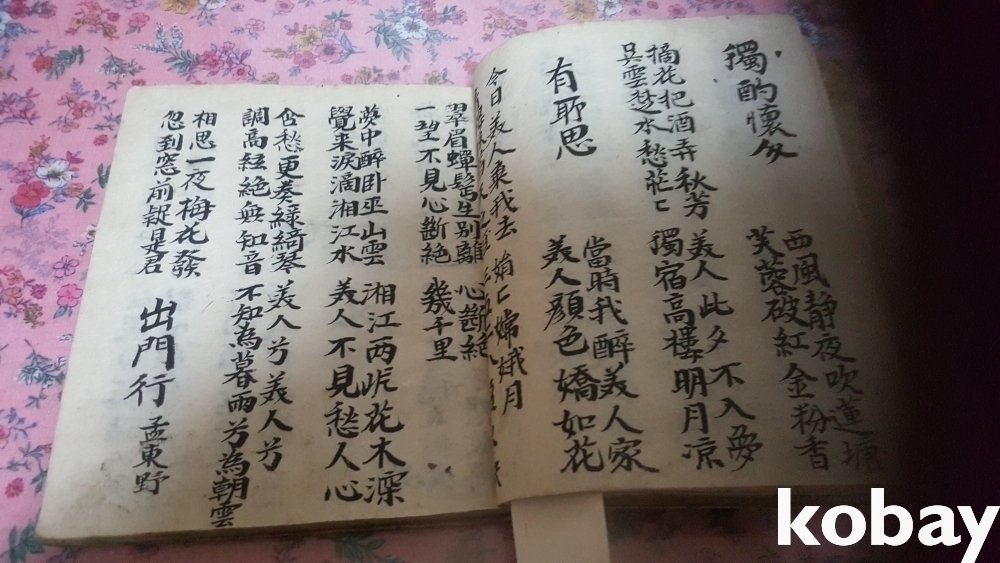 獨酌懷友
西風静夜吹蓮塘
芙蓉破紅金粉香
摘花把酒弄秋芳
吴雲楚水愁茫〻
美人此夕不入夢
獨宿高樓明月凉
有所思
當時我醉美人家
美人顔色嬌如花
今日美人棄我去
娟〻嫦娥月
翠眉蟬鬂生别離
一望不見心斷絶
心斷絶
幾千里
夢中醉卧巫山雲
覺来淚滴湘江水
湘江两岸花木深
美人不見愁人心
含愁更奏緑綺琴
調高絃絶無知音
美人兮美人兮
不知為暮雨兮為朝雲
相思一夜梅花發
忽到窓前疑是君
出門行 孟東野
kobay